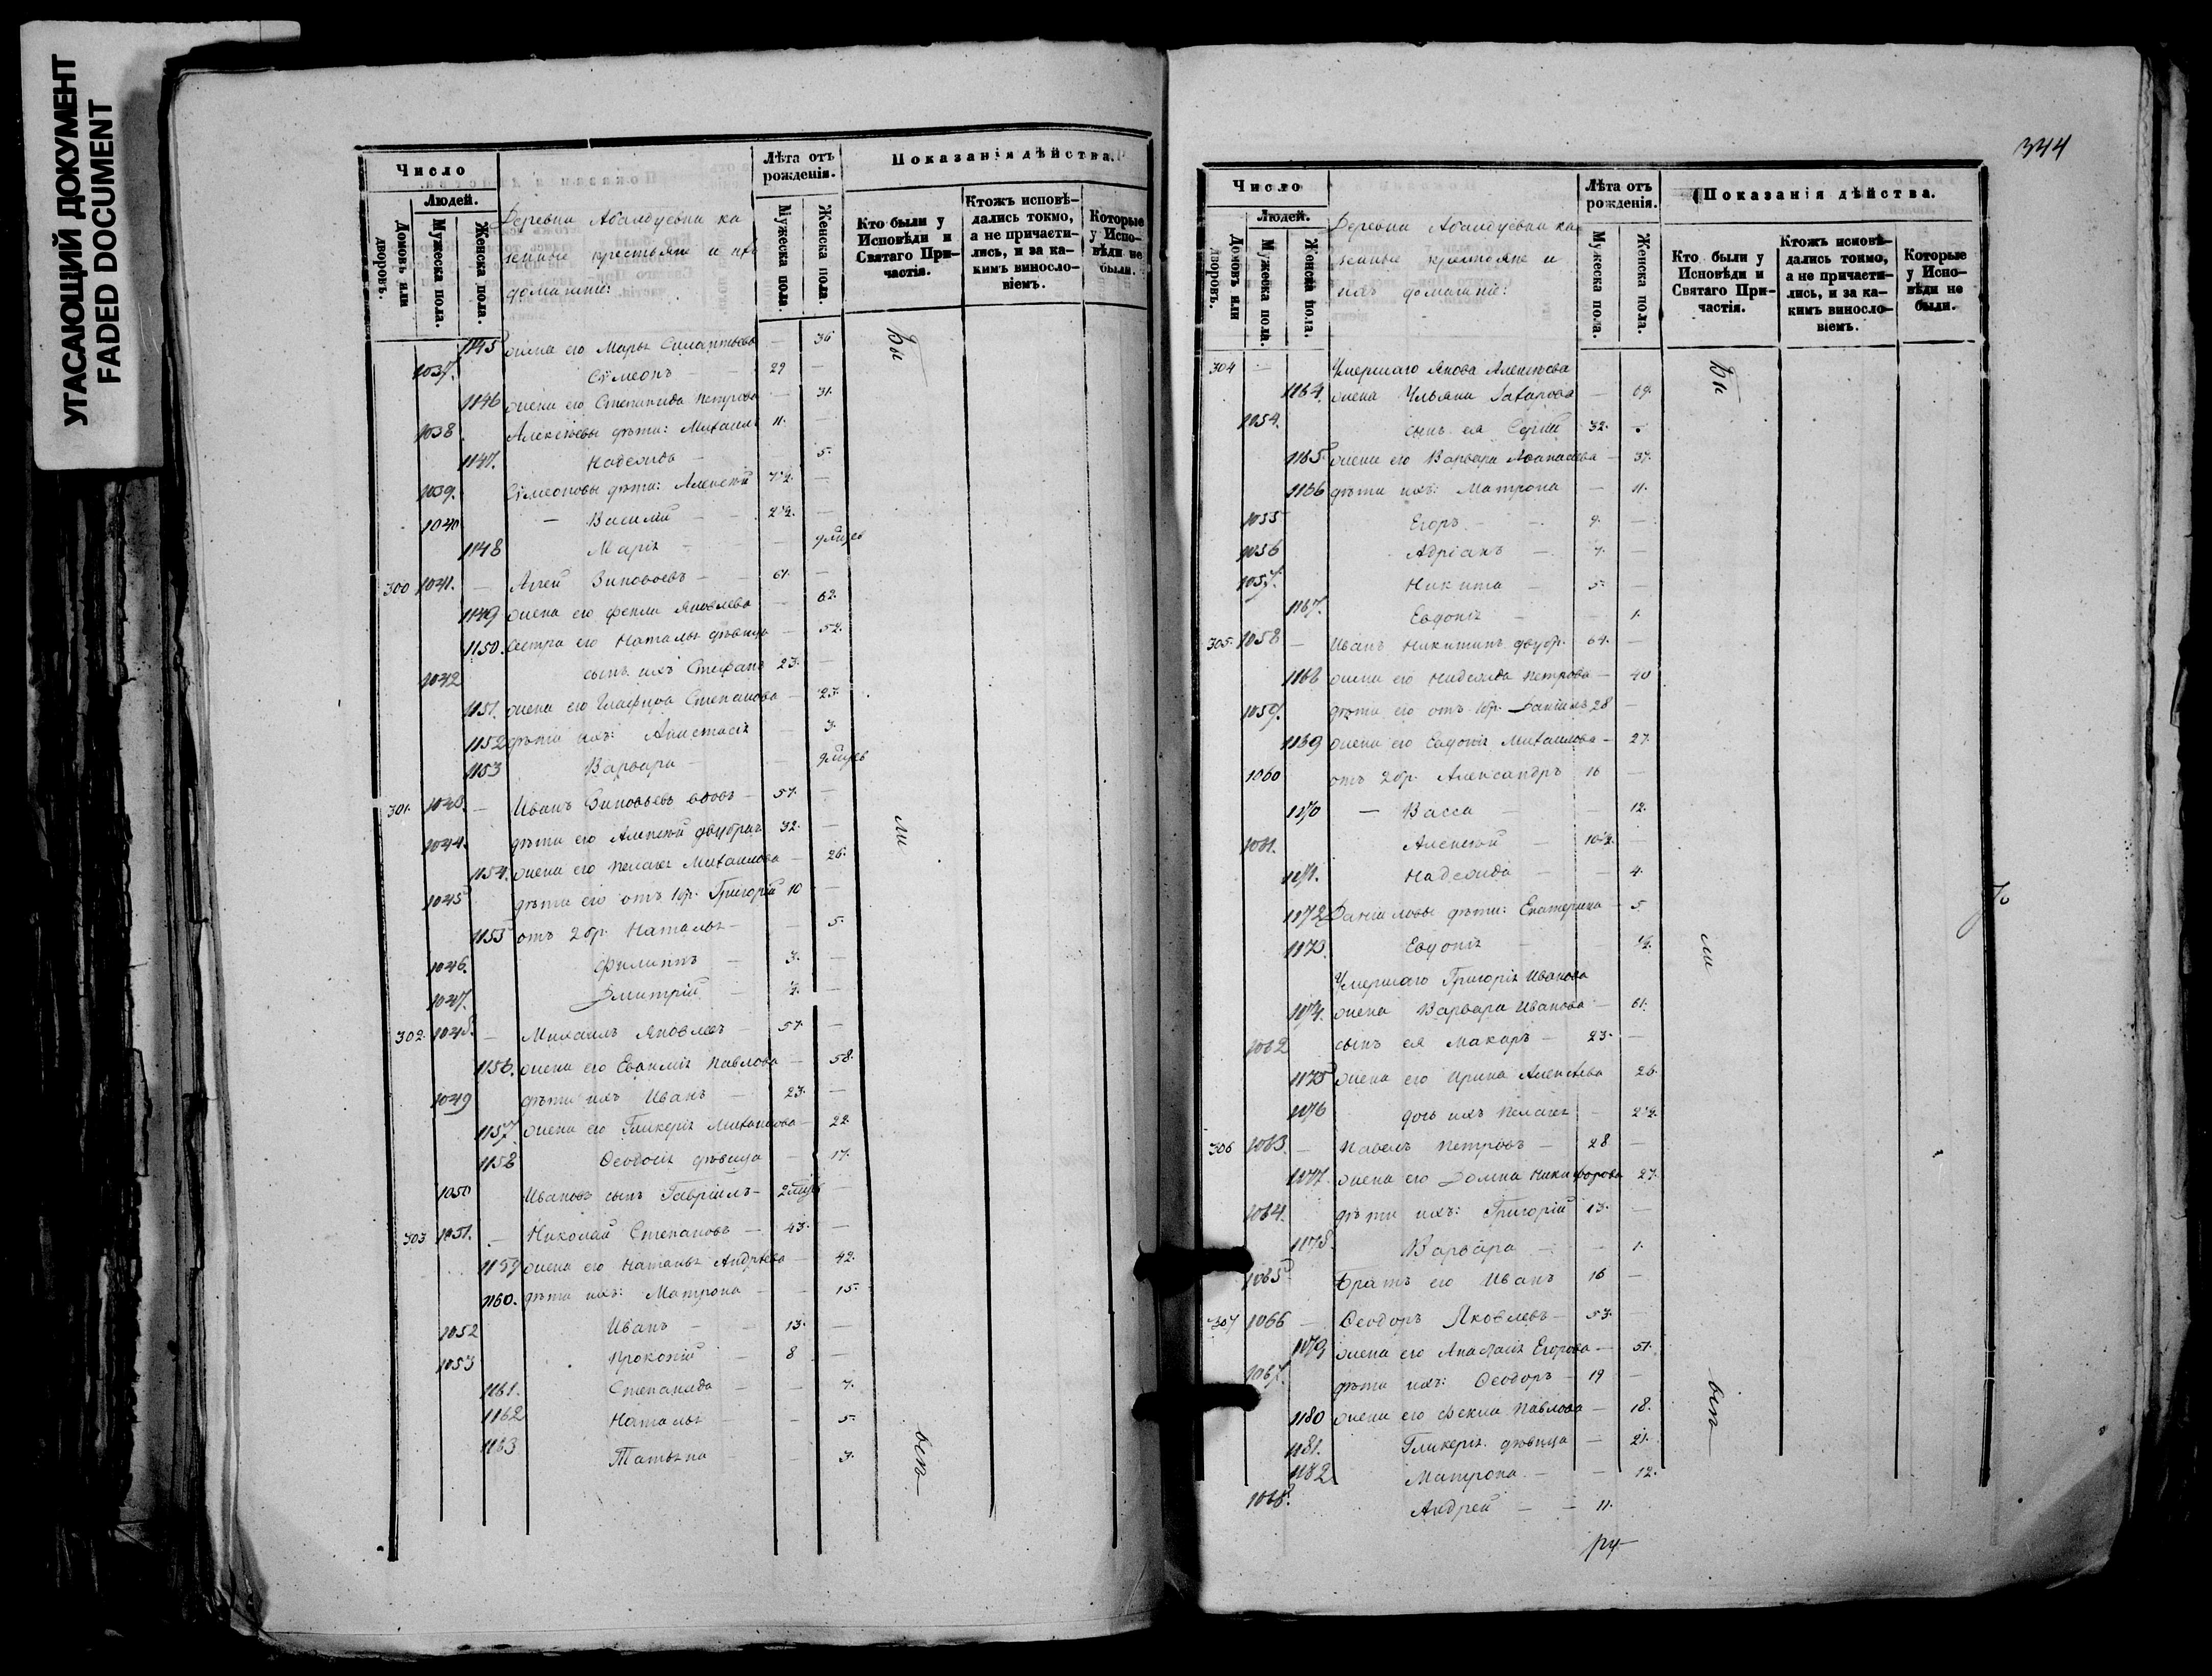 УГАСАЮЩИЙ ДОКУМЕНТ
FADED DOCUMENT
Число
Людей.
Домовъ или дворовъ.
Мужеска пола.
Женска пола.
Лѣта отъ рожденія.
Мужеска пола
Женска пола.
Показанія дѣйства.
Кто были у Исповѣди и Святаго Причастія.
Ктожъ исповѣдались токмо, а не причастились, и за какимъ винословіемъ.
Которые у Исповѣди не были.
Деревни Абалдуевки ка
зенные крестьяне и ихъ
домашніе:
1145 жена его Марья — 36
1037. Сѵмеонъ — 29 —
1146 жена его Степанида Петрова — 31.
1038 Алексѣевы дѣти: Михаилъ 11. —
1147. Надежда — 5.
1039. Сѵмеоновы дѣти: Алексѣй 7½. —
1040 — Василій — 2½. —
1148 Марія —
300 1041. — Аггей Зиновьевъ — 61. —
1149 жена его Фекла Яковлева — 62.
1150. Сестра его Наталья дѣвица — 52.
1042 сынъ ихъ Стефанъ 23. —
1151. жена его Глафира Степанова — 23.
1152 дѣти ихъ: Анастасія — 3.
1153 Варвара —
301. 1043. — Иванъ Зиновьевъ вдовъ — 57. —
1044. дѣти его Алексѣй двубрач. 32. —
1154. жена его Пелагея Михаилова — 26.
1045 дѣти его отъ 1 бр. Григорій 10 —
1155 отъ 2 бр. Наталья — 5.
1046. Филиппъ — 3. —
1047. Димитрій — ½. —
302. 1048. — Михаилъ Яковлевъ — 57. —
1156. жена его Евфимія Павлова — 58.
1049 дѣти ихъ Иванъ — 23. —
1157. жена его Гликерія Михаилова — 22.
1158 Ѳеодосія дѣвица — 17.
1050 Ивановъ сынъ Гавріилъ —
303 1051. — Николай Степановъ — 43. —
1159 жена его Наталья Андрѣева — 42.
1160. дѣти ихъ: Матрона — 15.
1052 Иванъ — 13. —
1053 Прокопій — 8 —
1161. Степанида — 7.
1162 Наталья — 5.
1163 Татьяна — 3.
Бы
ли
всѣ
344
Число
Людей.
Домовъ или дворовъ.
Мужеска пола.
Женска пола.
Лѣта отъ рожденія.
Мужеска пола.
Женска пола.
Показанія дѣйства.
Кто были у Исповѣди и Святаго Причастія.
Ктожъ исповѣдались токмо, а не причастились, и за какимъ винословіемъ.
Которые у Исповѣди не были.
Деревни Абалдуевки ка
зенные крестьяне и
ихъ домашніе:
304 — Умершаго Якова Алексѣева
1164. жена Ульяна Захарова —
1054. сынъ ея Сергій 32. —
1165. жена его Варвара Аѳанасьева — 37.
1166 дѣти ихъ: Матрона — 11.
1055 Егоръ — 9. —
1056 Адріанъ — 7. —
1057. Никита — 5. —
1167. Евдокія — 1.
305. 1058 — Иванъ Никитинъ двубр. 64. —
1168 жена его Надежда Петрова — 40
1059. дѣти его отъ 1 бр. Даніилъ 28 —
1169 жена его Евдокія Михаилова — 27.
1060 отъ 2 бр. Александръ 16 —
1170 — Васса — 12.
1061. Алексѣй — 10½. —
1171. Надежда — 4.
1172 Даніиловы дѣти: Екатерина — 5
1173. Евдокія — ½.
Умершаго Григорія Иванова
1174. жена Варвара Иванова — 61.
1062 сынъ ея Макаръ — 23. —
1175 жена его Ирина Алексѣева 26.
1176 дочь ихъ Пелагея — 2½.
306 1063. — Павелъ Петровъ — 28 —
1177. жена его Домна Никифорова 27.
1064. дѣти ихъ: Григорій 13. —
1178. Варвара — 1.
1065 Братъ его Иванъ 16 —
307 1066 — Ѳеодоръ Яковлевъ — 53. —
1179 жена его Анастасія Егорова — 51.
1067. дѣти ихъ: Ѳеодоръ — 19 —
1180 жена его Фекла Павлова — 18.
1181. Гликерія дѣвица — 21.
1182 Матрона — 12.
1068. Андрей — 11.
Бы
ли
всѣ